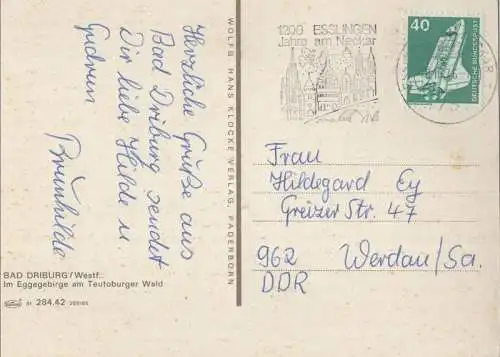 Herzliche Grüße aus
Bad Driburg sendet
Dir liebe Hilde u.
Gudrun
Brunhilde
BAD DRIBURG/Westf.
Im Eggegebirge am Teutoburger Wald
284.42
WOLFG. HANS KLOCKE VERLAG, PADERBORN
1200 ESSLINGEN
Jahre am Neckar
40
DEUTSCHE BUNDESPOST
Frau
Hildegard Ey
Greizer Str. 47
962 Werdau/Sa.
DDR